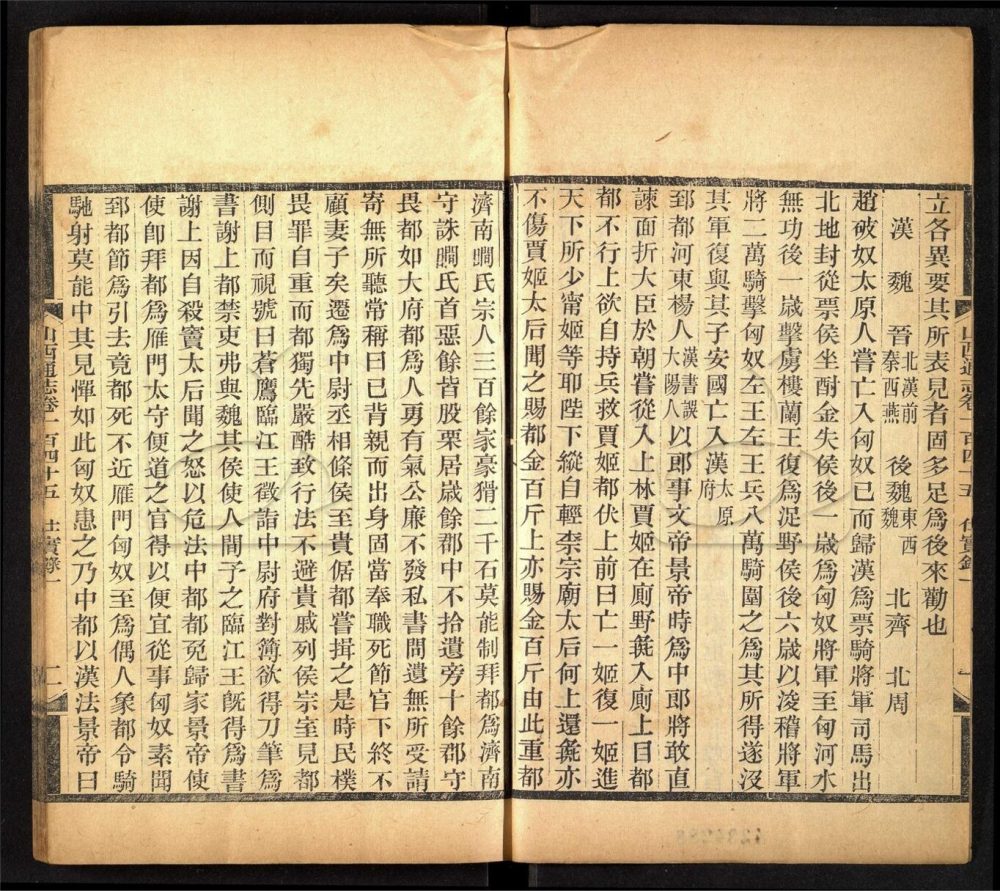 立各異要其所表見者固多足爲後來勸也
漢 魏 晉北漢前秦西燕 後魏東西魏 北齊 北周
趙破奴太原人嘗亡入匈奴已而歸漢爲票騎將軍司馬出
北地封從票侯坐酎金失侯後一歲爲匈奴將軍至匈河水
無功後一歲擊虜樓蘭王復爲浞野侯後六歲以浚稽將軍
將二萬騎擊匈奴左王左王兵八萬騎圍之爲其所得遂沒
其軍復與其子安國亡入漢太原府
郅都河東楊人漢書誤大陽人以郎事文帝景帝時爲中郎將敢直
諫面折大臣於朝嘗從入上林賈姬在廁野彘入廁上目都
都不行上欲自持兵救賈姬都伏上前曰亡一姬復一姬進
天下所少甯姬等耶陛下縱自輕柰宗廟太后何上還彘亦
不傷賈姬太后聞之賜都金百斤上亦賜金百斤由此重都
濟南瞷氏宗人三百餘家豪猾二千石莫能制拜都爲濟南
守誅瞷氏首惡餘皆股栗居歲餘郡中不拾遺旁十餘郡守
畏都如大府都爲人勇有氣公廉不發私書問遺無所受請
寄無所聽常稱曰已背親而出身固當奉職死節官下終不
顧妻子矣遷爲中尉丞相條侯至貴倨都嘗揖之是時民樸
畏罪自重而都獨先嚴酷致行法不避貴戚列侯宗室見都
側目而視號曰蒼鷹臨江王徵詣中尉府對簿欲得刀筆爲
書謝上都禁吏弗與魏其侯使人間予之臨江王旣得爲書
謝上因自殺竇太后聞之怒以危法中都都免歸家景帝使
使卽拜都爲雁門太守便道之官得以便宜從事匈奴素聞
郅都節爲引去竟都死不近雁門匈奴至爲偶人象都令騎
馳射莫能中其見憚如此匈奴患之乃中都以漢法景帝曰
山西通志卷一百四十五 仕實錄一 二